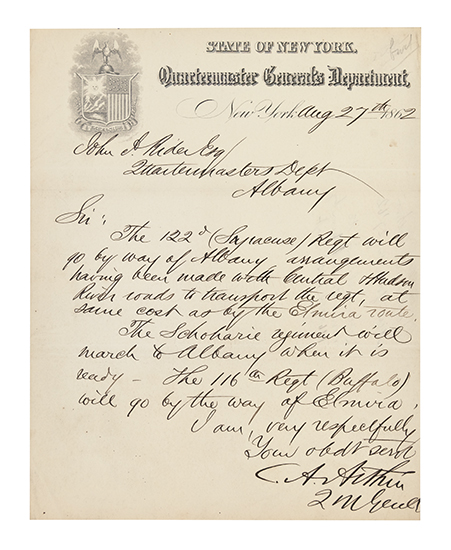 STATE OF NEW YORK.
Quartermaster General's Department,
New York Aug 27th 1862
John A. Rider Esq
Quartermasters Dept
Albany
Sir:
The 122d (Syracuse) Regt will
go by way of Albany, arrangements
having been made with Central & Hudson
River roads to transport the regt, at
same cost as by the Elmira route.
The Schoharie regiment will
march to Albany when it is
ready – The 116th Regt (Buffalo)
will go by the way of Elmira.
I am, very respectfully
Your obdt servt
C. A. Arthur
Q M Genl